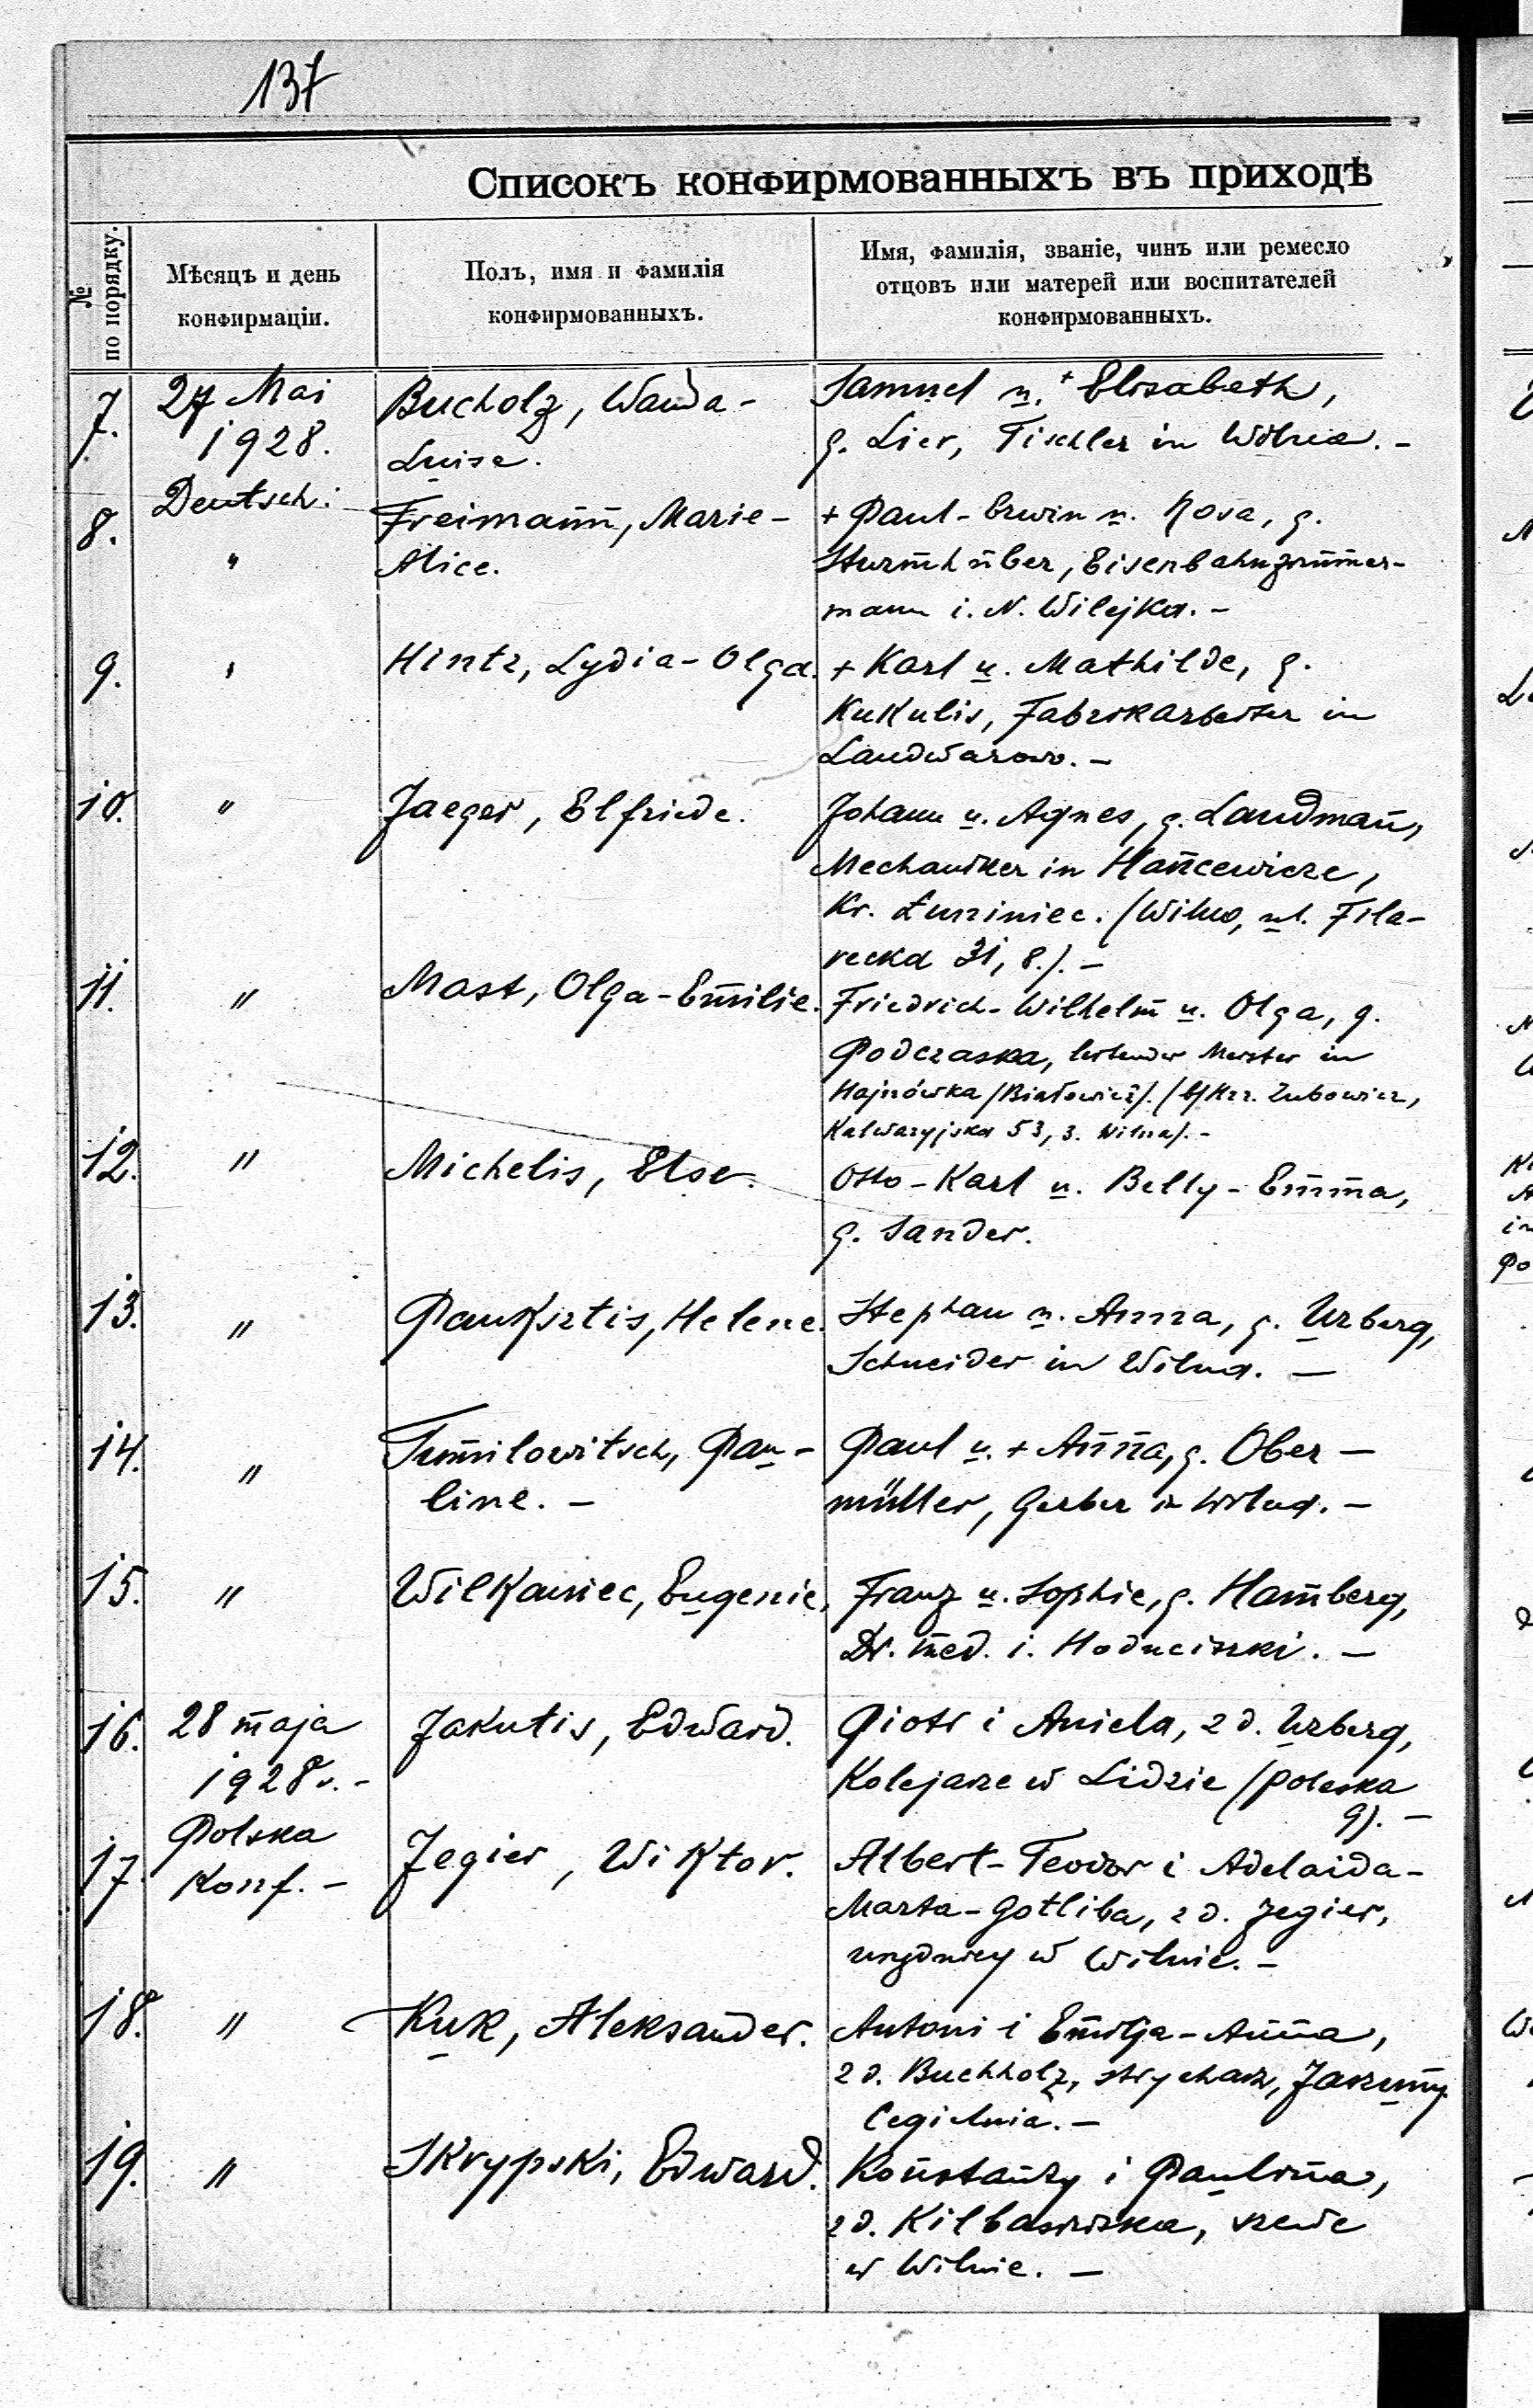 137
Списокъ конфирмованныхъ въ приходѣ
№ по порядку.
Мѣсяцъ и день
конфирмаціи.
Полъ, имя и фамилія
конфирмованныхъ.
Имя, фамилія, званіе, чинъ или ремесло
отцовъ или матерей или воспитателей
конфирмованныхъ.
7.
27 Mai
1928.
Deutsch:
Bucholz, Wanda-
Luise.
Samuel u. + Elisabeth,
g. Lier, Tischler in Wilna. -
8.
"
Freimann, Marie-
Alice.
+ Paul-Erwin u. Rosa, g.
Sturmhüber, Eisenbahnzimmer-
mann i. N. Wilejka. -
9.
"
Hintz, Lydia-Olga.
+ Karl u. Mathilde, g.
Kukulis, Fabrikarbeiter in
Landwarowo. -
10.
"
Jaeger, Elfriede.
Johann u. Agnes, g. Landmann,
Mechaniker in Hancewicze,
Kr. Łuniniec. (Wilno, ul. Fila-
recka 31, 8.). -
11.
"
Mast, Olga-Emilie.
Friedrich-Wilhelm u. Olga, g.
Podczaska, leitender Meister in
Hajnówka (Białowież). (b/Hrr. Zubowicz,
Kalwaryjska 53, 3. Wilna). -
12.
"
Michelis, Else.
Otto-Karl u. Belly-Emma,
g. Sander.
13.
"
Pauksztis, Helene.
Stephan u. Anna, g. Urberg,
Schneider in Wilna. -
14.
"
Tumilowitsch, Pau-
line. -
Paul u. + Anna, g. Ober-
müller, Gerber in Wilna. -
15.
"
Wilkaniec, Eugenie.
Franz u. Sophie, g. Hamberg,
Dr. med. i. Hoduciszki. -
16.
28 maja
1928 r. -
Polska
Konf. -
Jakutis, Edward.
Piotr i Aniela, z d. Urberg,
Kolejarz w Lidzie (Poleska
9). -
17.
Jegier, Wiktor.
Albert-Teodor i Adelaida-
Marta-Gotliba, z d. Jegier,
urzędnicy w Wilnie. -
18.
"
Kuk, Aleksander.
Antoni i Emilja-Anna,
z d. Buchholz, strycharz, Jaszuny
Cegielnia. -
19.
"
Skrypski, Edward.
Konstanty i Paulina,
z d. Kilbasińska, szewc
w Wilnie. -